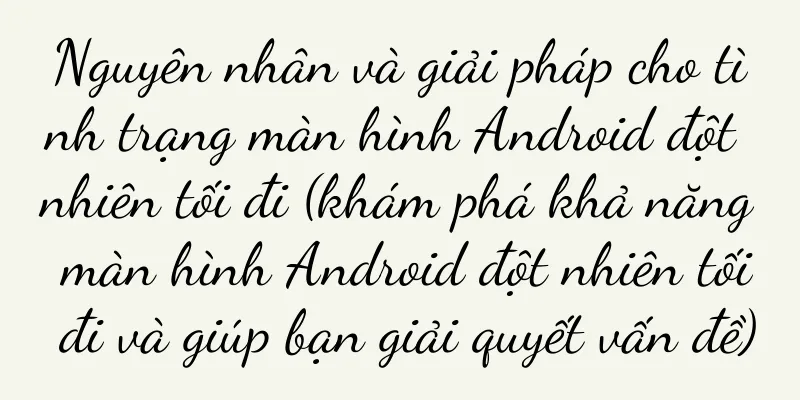 Nguyên nhân và giải pháp cho tì
nh trạng màn hình Android đột
nhiên tối đi (khám phá khả năng
màn hình Android đột nhiên tối
đi và giúp bạn giải quyết vấn đề)